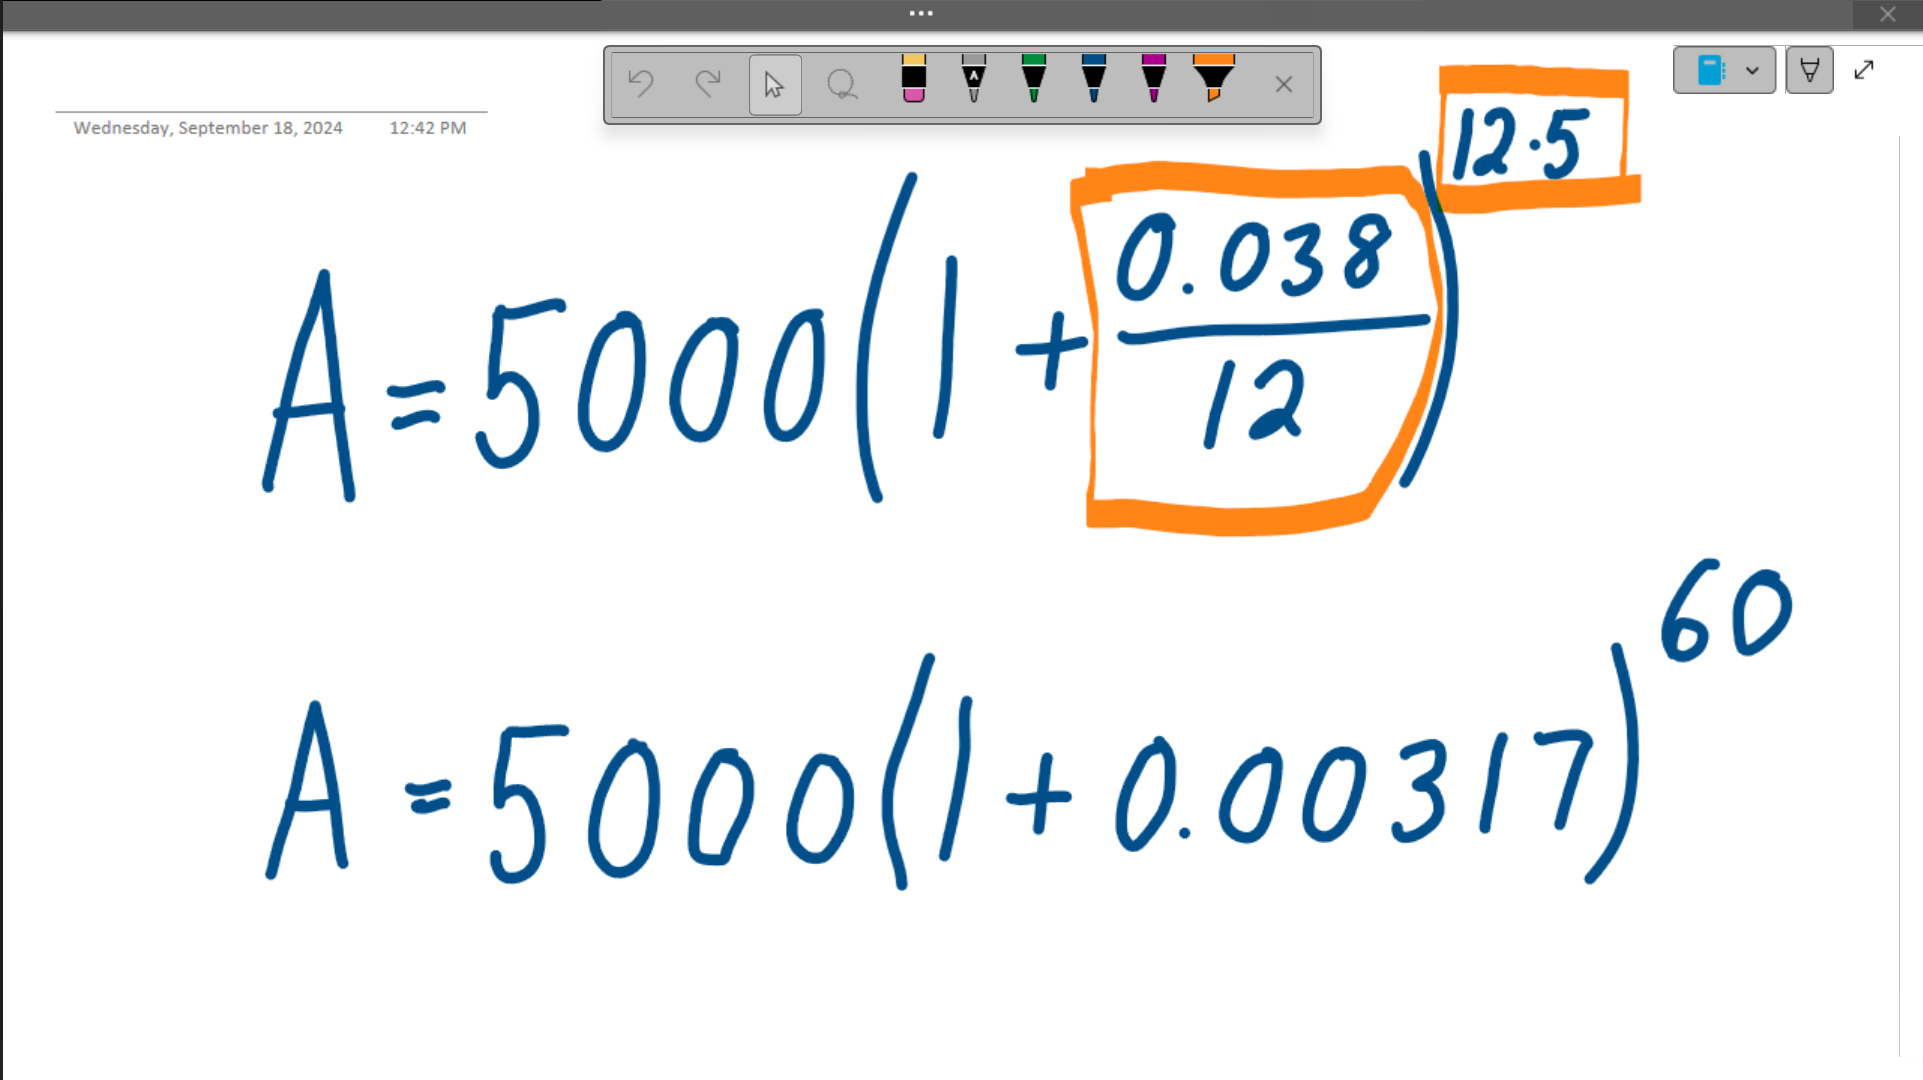 Wednesday, September 18, 2024 12:42 PM
A = 5000(1 + 0.038/12)^12·5
A = 5000(1 + 0.00317)^60